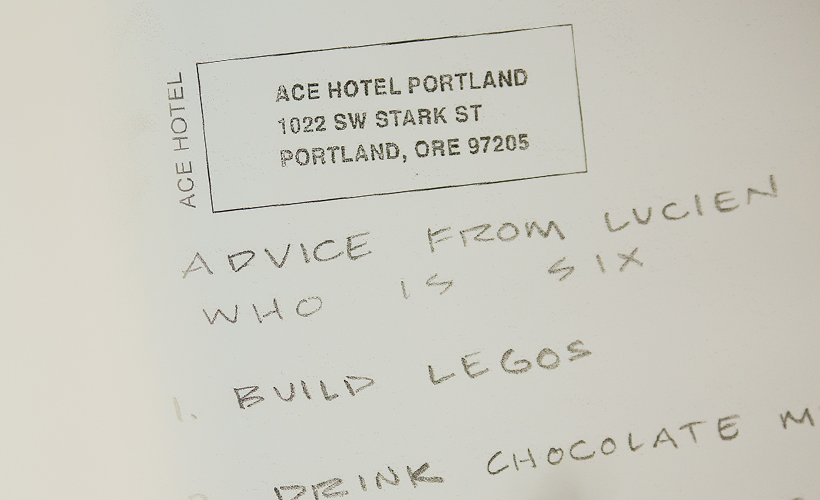 ACE HOTEL
ACE HOTEL PORTLAND
1022 SW STARK ST
PORTLAND, ORE 97205
ADVICE FROM LUCIEN
WHO IS SIX
1. BUILD LEGOS
DRINK CHOCOLATE